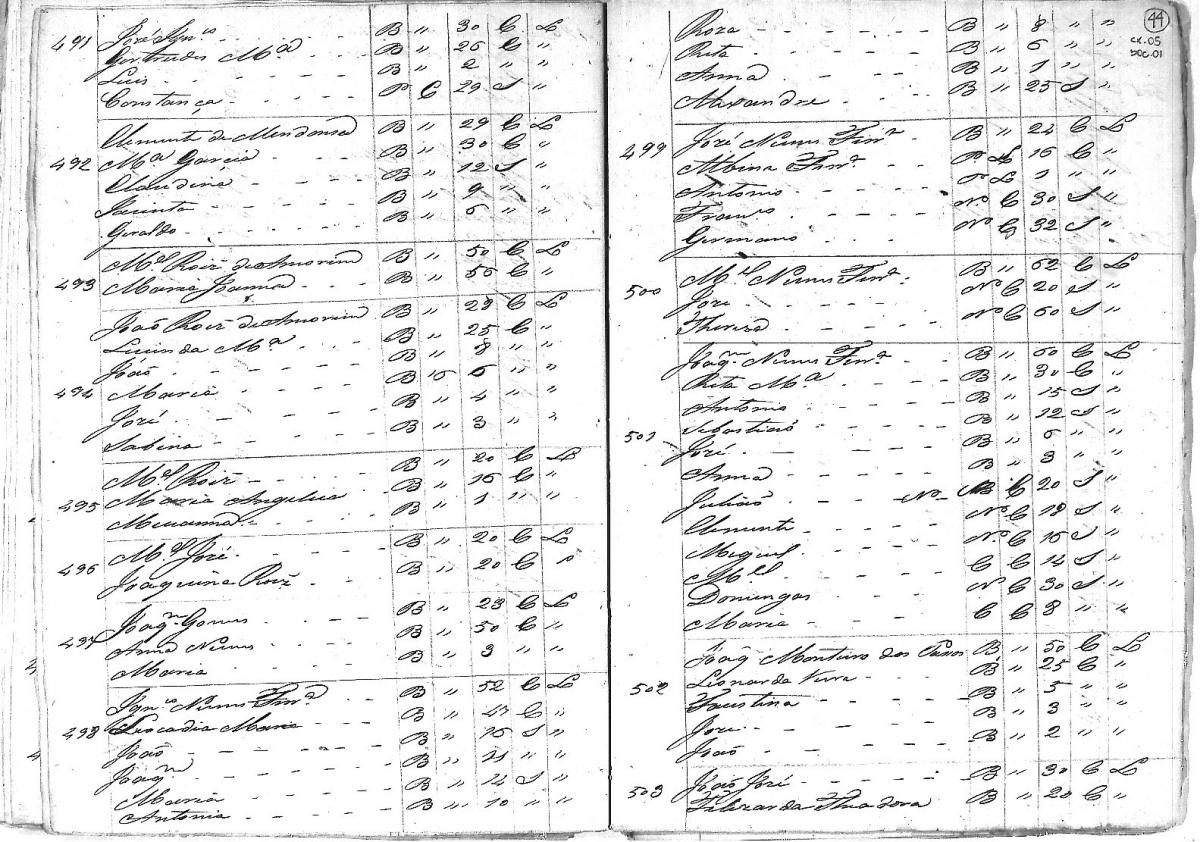 491 José Ign.co B " 30 C L
Gertrudes M.a B " 26 C "
Luis B " 2 " "
Constança P C 29 S "
Clemente de Mendonsa B " 29 C L
492 M.a Garcia B " 30 C "
Claudina B " 12 S "
Jacinta B " 9 " "
Geraldo B " 6 " "
M.el Roiz de Amorim B " 50 C L
493 Maria Joanna B " 56 C "
João Roiz de Amorim B " 29 C L
Lucinda M.a B " 25 C "
João B " 8 " "
494 Maria B 15 6 " "
José B " 4 " "
Sabina B " 3 " "
M.el Roiz B " 20 C L
495 Maria Angelica B " 16 C "
B " 1 " "
M.el José B " 20 C L
496 Joaquina Roiz B " 20 C "
Joaq.m Gomes B " 23 C L
497 Anna Nunes B " 50 C "
Maria B " 3 " "
Ign.co Nunes B " 52 C L
498 Leocadia Maria B " 47 C "
João B " 16 S "
Joaq.m B " 11 " "
Maria B " 14 S "
Antonia B " 10 " "
44
cx.05
DOC.01
Roza B " 8 " "
Rita B " 6 " "
Anna B " 1 " "
Alexandre B " 25 S "
José Nunes B " 24 C L
499 Albina P L 16 C "
Antonio P L 1 " "
Fran.co N.o C 30 S "
Germano N.o C 32 S "
M.el Nunes B " 62 C L
500 José N.o C 20 S "
Thereza N.o C 60 S "
Joaq.m Nunes B " 60 C L
Rita M.a B " 30 C "
Antonio B " 15 S "
Sebastião B " 12 S "
501 José B " 6 " "
Anna B " 3 " "
Julião N.o C 20 S "
Clemente N.o C 18 S "
Miguel N.o C 16 S "
M.el C C 14 S "
Domingas N C 30 S "
Maria C C 8 " "
Joaq Monteiro dos Passos B " 50 C L
502 Leonarda Vieira B " 25 C "
Faustina B " 5 " "
José B " 3 " "
João B " 2 " "
503 João José B " 30 C L
Felizarda Theadora B " 20 C "